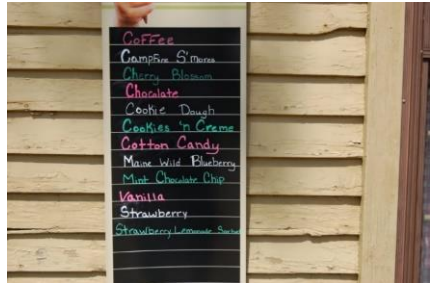 Coffee
Campfire S'mores
Cherry Blossom
Chocolate
Cookie Dough
Cookies 'n Creme
Cotton Candy
Maine Wild Blueberry
Mint Chocolate Chip
Vanilla
Strawberry
Strawberry Lemonade Sorbet